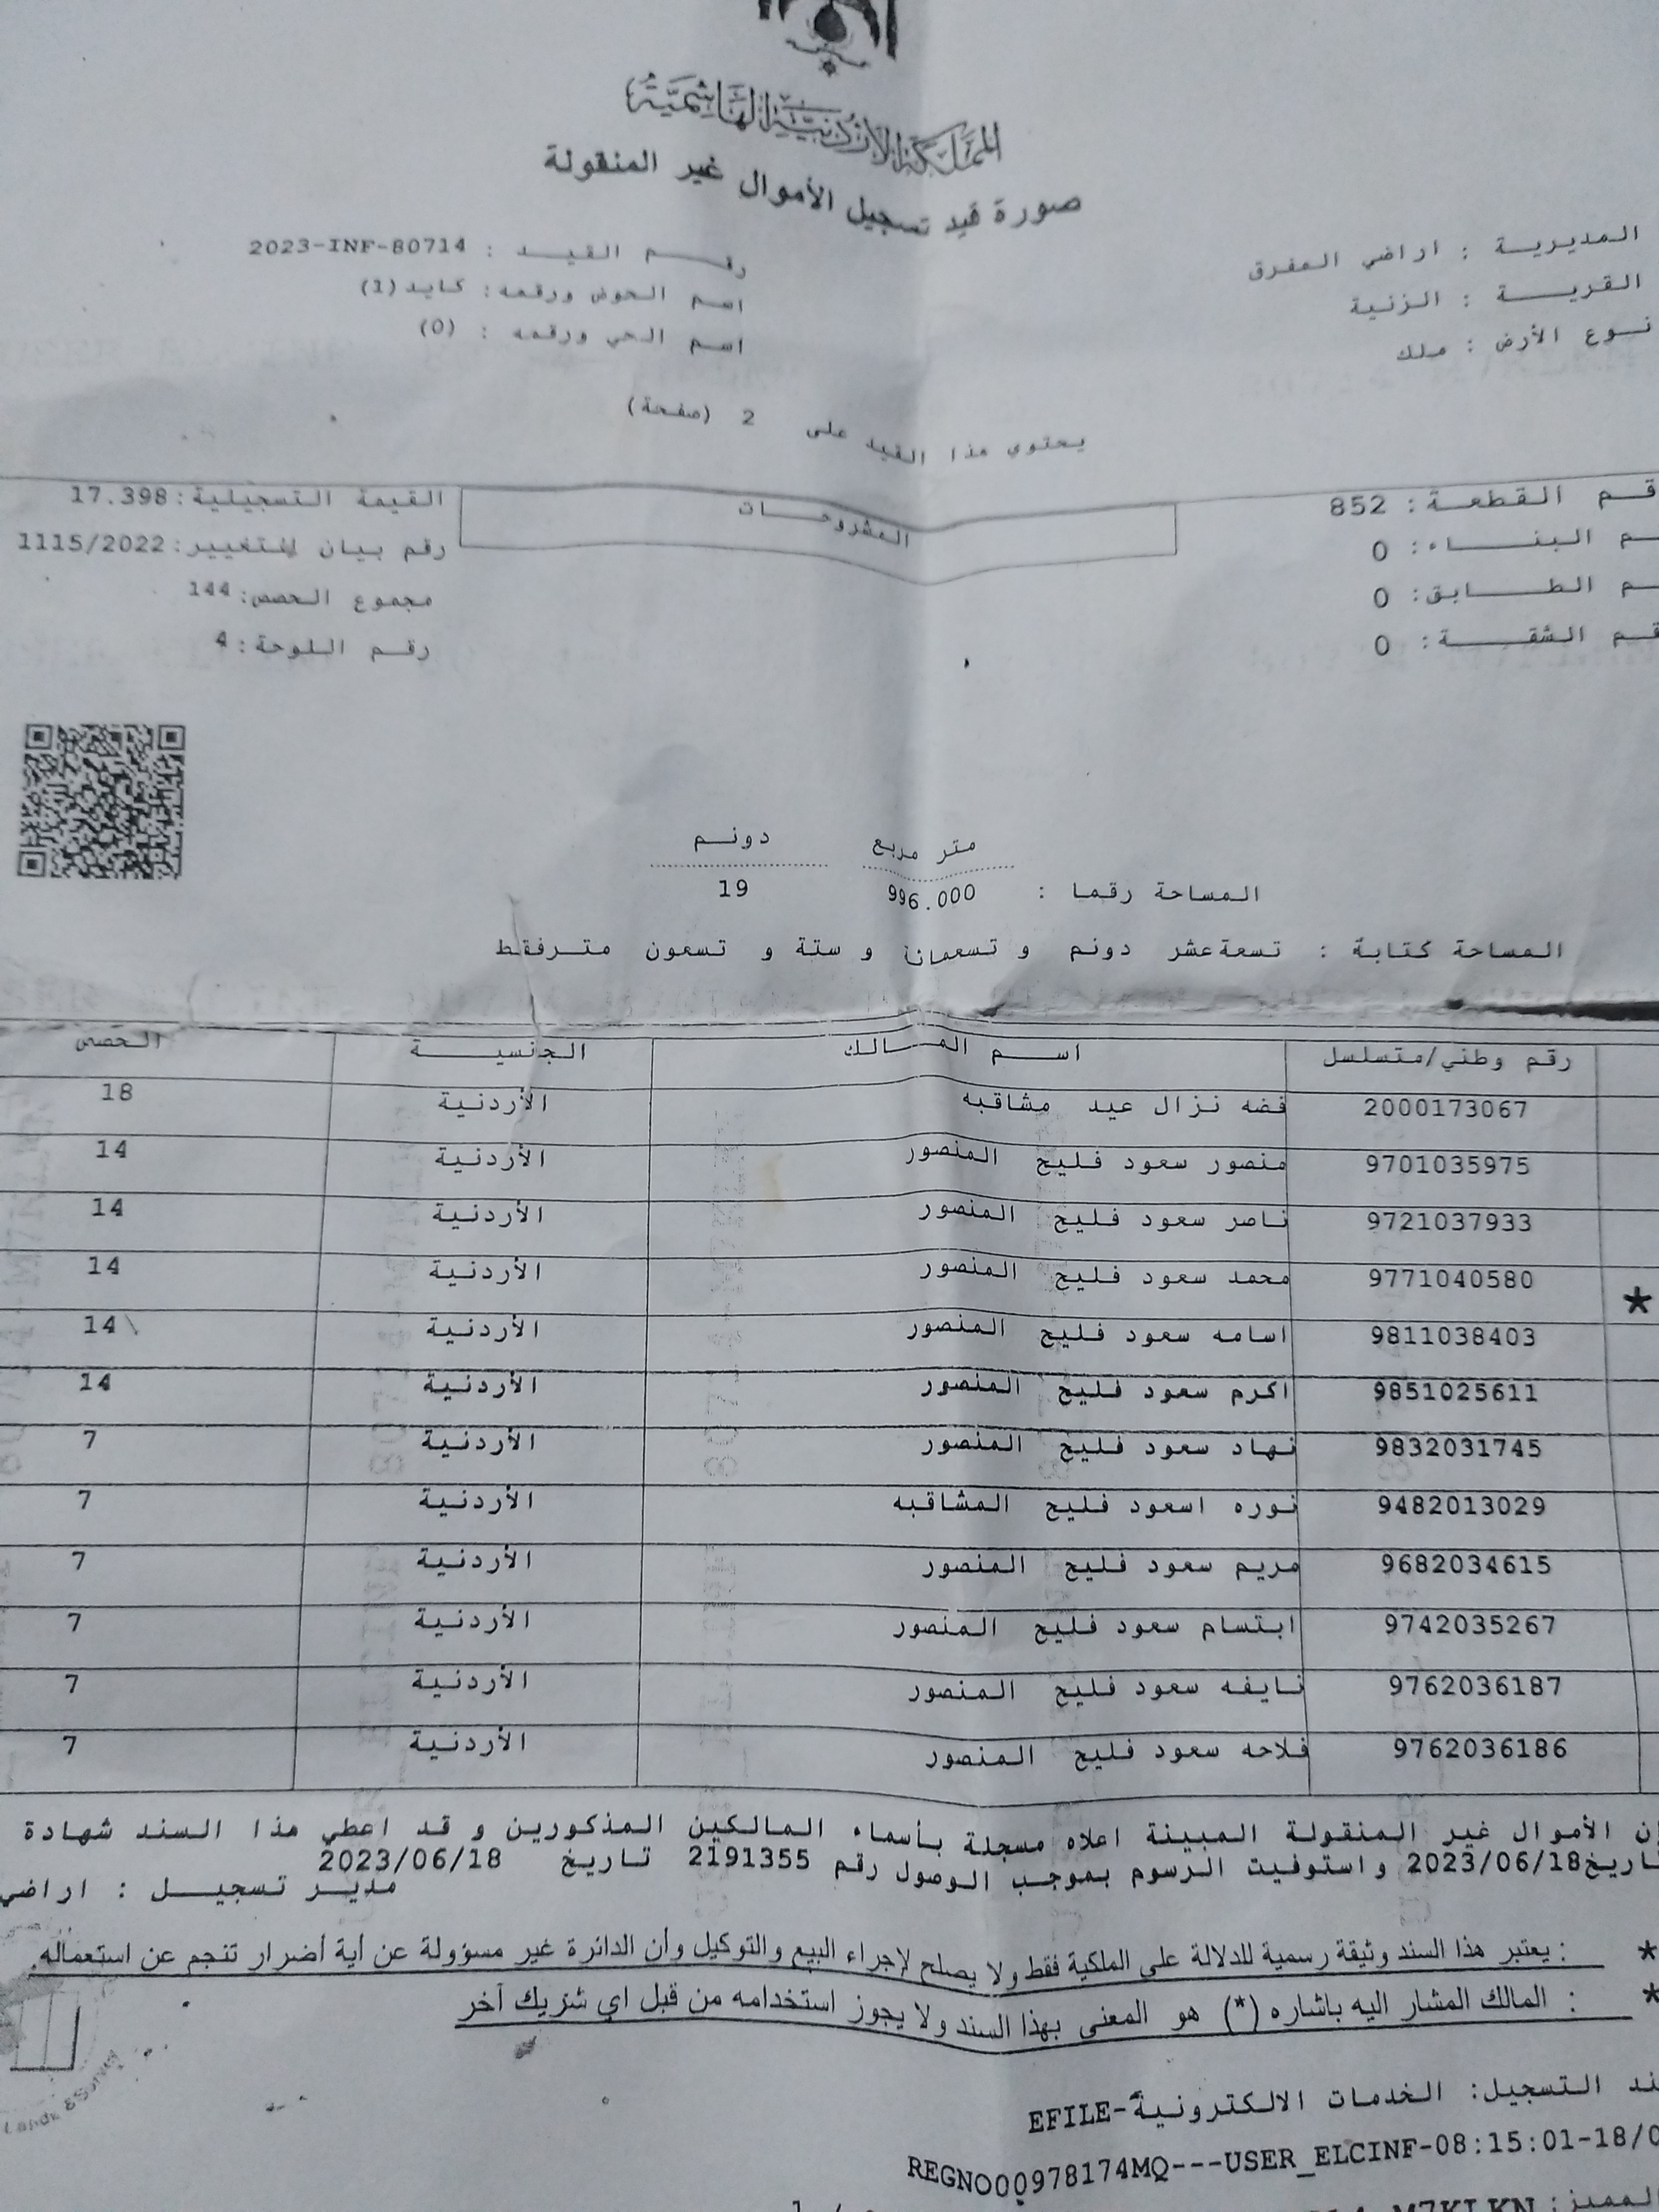 المملكة الأردنية الهاشمية
صورة قيد تسجيل الأموال غير المنقولة
المديرية : اراضي المفرق
رقم القيد : 2023-INF-80714
القرية : الزنية
اسم الحوض ورقمه: كايد(1)
نوع الأرض : ملك
اسم الحي ورقمه : (0)
يحتوي هذا القيد على 2 (صفحة)
قم القطعة: 852
المشروحات
القيمة التسجيلية:17.398
م البناء: 0
رقم بيان التغيير:1115/2022
م الطابق: 0
مجموع الحصص:144
قم الشقة: 0
رقم اللوحة:4
متر مربع دونم
المساحة رقما : 996.000 19
المساحة كتابة : تسعةعشر دونم و تسعمائة و ستة و تسعون مترفقط
رقم وطني/متسلسل اسم المالك الجنسية الحصص
2000173067 فضه نزال عيد مشاقبه الأردنية 18
9701035975 منصور سعود فليح المنصور الأردنية 14
9721037933 ناصر سعود فليح المنصور الأردنية 14
* 9771040580 محمد سعود فليح المنصور الأردنية 14
9811038403 اسامه سعود فليح المنصور الأردنية 14
9851025611 اكرم سعود فليح المنصور الأردنية 14
9832031745 نهاد سعود فليح المنصور الأردنية 7
9482013029 نوره اسعود فليح المشاقبه الأردنية 7
9682034615 مريم سعود فليح المنصور الأردنية 7
9742035267 ابتسام سعود فليح المنصور الأردنية 7
9762036187 نايفه سعود فليح المنصور الأردنية 7
9762036186 فلاحه سعود فليح المنصور الأردنية 7
إن الأموال غير المنقولة المبينة اعلاه مسجلة بأسماء المالكين المذكورين و قد اعطي هذا السند شهادة
تاريخ2023/06/18 واستوفيت الرسوم بموجب الوصول رقم 2191355 تاريخ 2023/06/18
مدير تسجيل : اراضي
* : يعتبر هذا السند وثيقة رسمية للدلالة على الملكية فقط ولا يصلح لإجراء البيع والتوكيل وأن الدائرة غير مسؤولة عن أية أضرار تنجم عن استعماله.
* : المالك المشار اليه باشاره (*) هو المعني بهذا السند ولا يجوز استخدامه من قبل اي شريك آخر
ند التسجيل: الخدمات الالكترونية-EFILE
REGNO00978174MQ---USER_ELCINF-08:15:01-18/0
المميز: